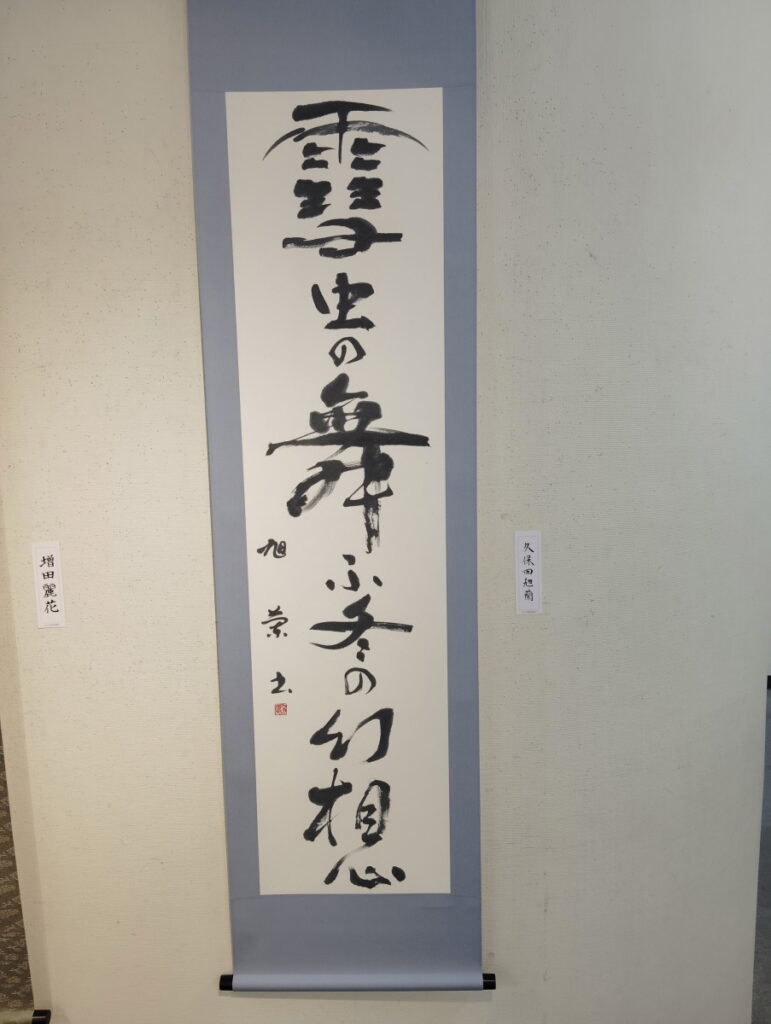 雪虫の舞ふ冬の幻想
旭蘭書
久保田旭蘭
増田麗花